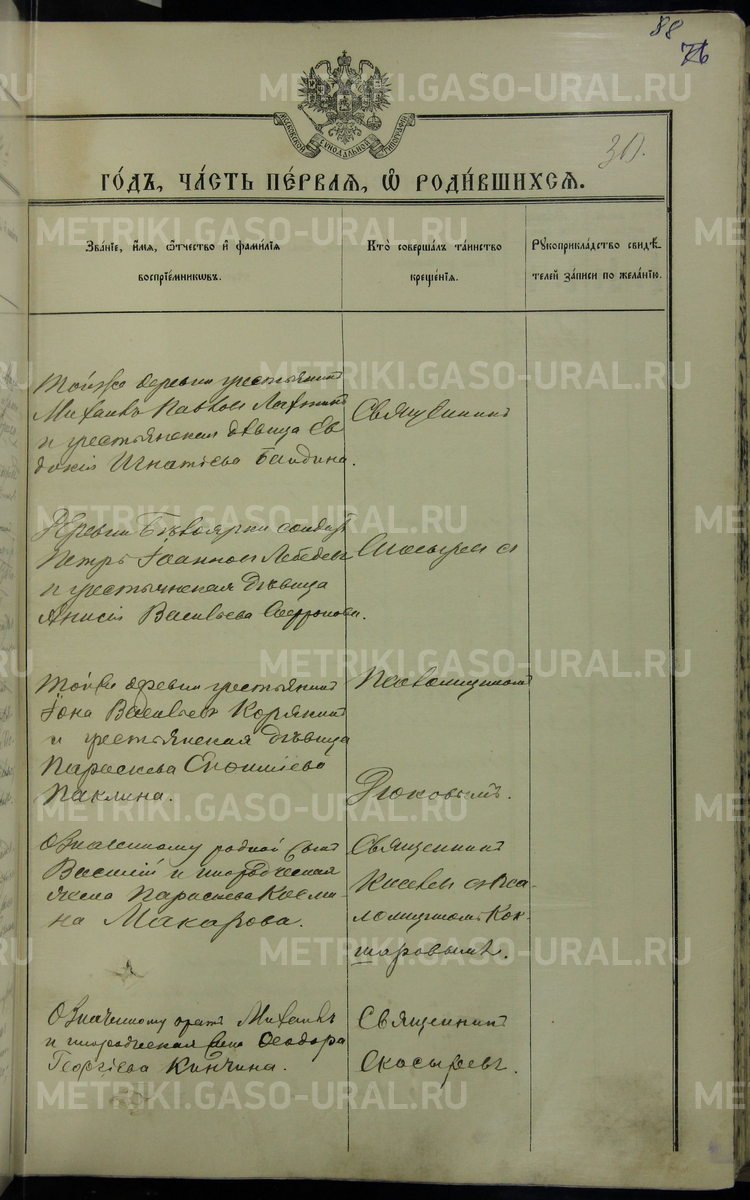 88
76
30.
МОСКОВСКОЙ СУНОДАЛЬНОЙ ТИПОГРАФІИ
ГОДЪ, ЧАСТЬ ПЕРВАЯ, Ѡ РОДИВШИХСЯ.
Званіе, имя, ѿчество и фамилія
воспріемниковъ.
Кто совершалъ таинство
крещенія.
Рукоприкладство свидѣ-
телей записи по желанію.
Той же деревни крестьянинъ
Михаилъ Павловъ
и крестьянская дѣвица Ев
докія Игнатіева Байдина.
Священникъ
Деревни солдатъ
Петръ Іоанновъ Лебедевъ
и крестьянская дѣвица
Анисія Васильева Сафронова.
Скосыревъ съ
Той же деревни крестьянинъ
Іона Васильевъ Корякинъ
и крестьянская дѣвица
Параскева
Паклина.
Псаломщикомъ
Рюковымъ.
Означенному родной сынъ
Василій и инородческая
жена Параскева Косми-
на Макарова.
Священникъ
Киселевъ съ Пса-
ломщикомъ Кок-
шаровымъ.
Означенному братъ Михаилъ
и инородческая жена Ѳеодора
Георгіева Кинчина.
Священникъ
Скосыревъ.
METRIKI.GASO-URAL.RU